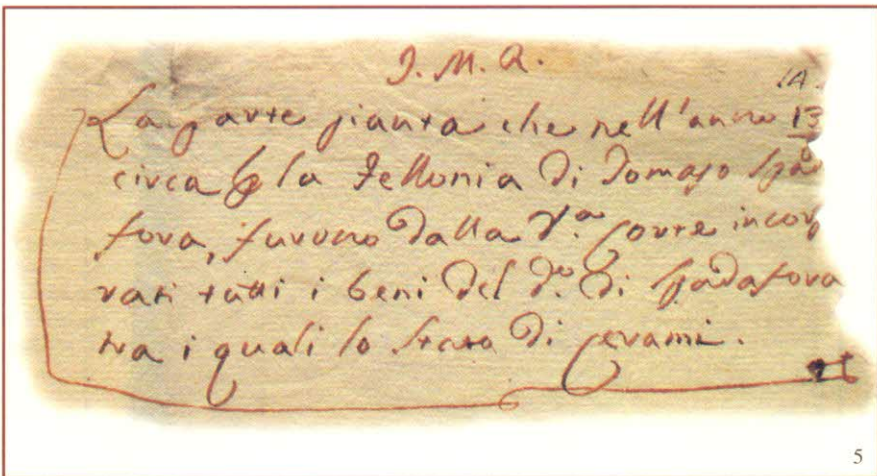 J. M. A.
14.
La parte pianta che nell'anno 13
circa p la Fellonia di Tomaso Spada
fora, furono dalla R.a Corte incorp
rati tutti i beni del d.o di Spadafora
tra i quali lo Stato di Cerami.
5